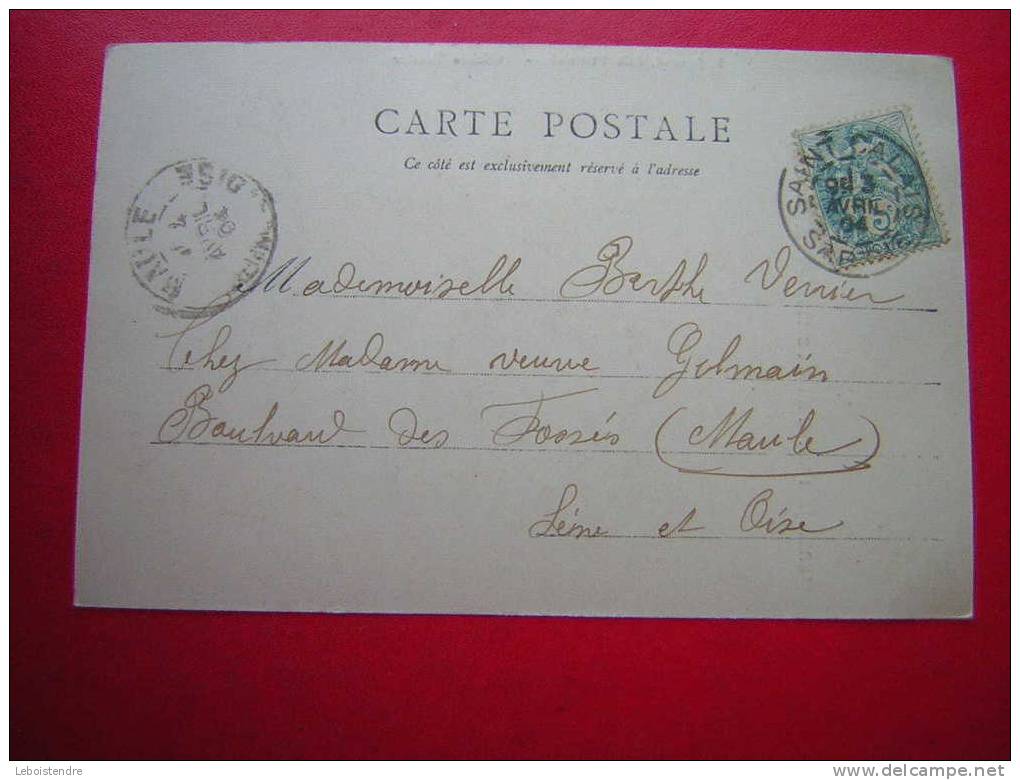 CARTE POSTALE
Ce côté est exclusivement réservé à l'adresse
SAINT-CALAIS
3
AVRIL
04
MAULE
AVRIL
04
Mademoiselle Berthe Verrier
Chez Madame veuve Gelmain
Boulvard des Fossés (Maule)
Seine et Oise
Leboistendre
www.delcampe.net